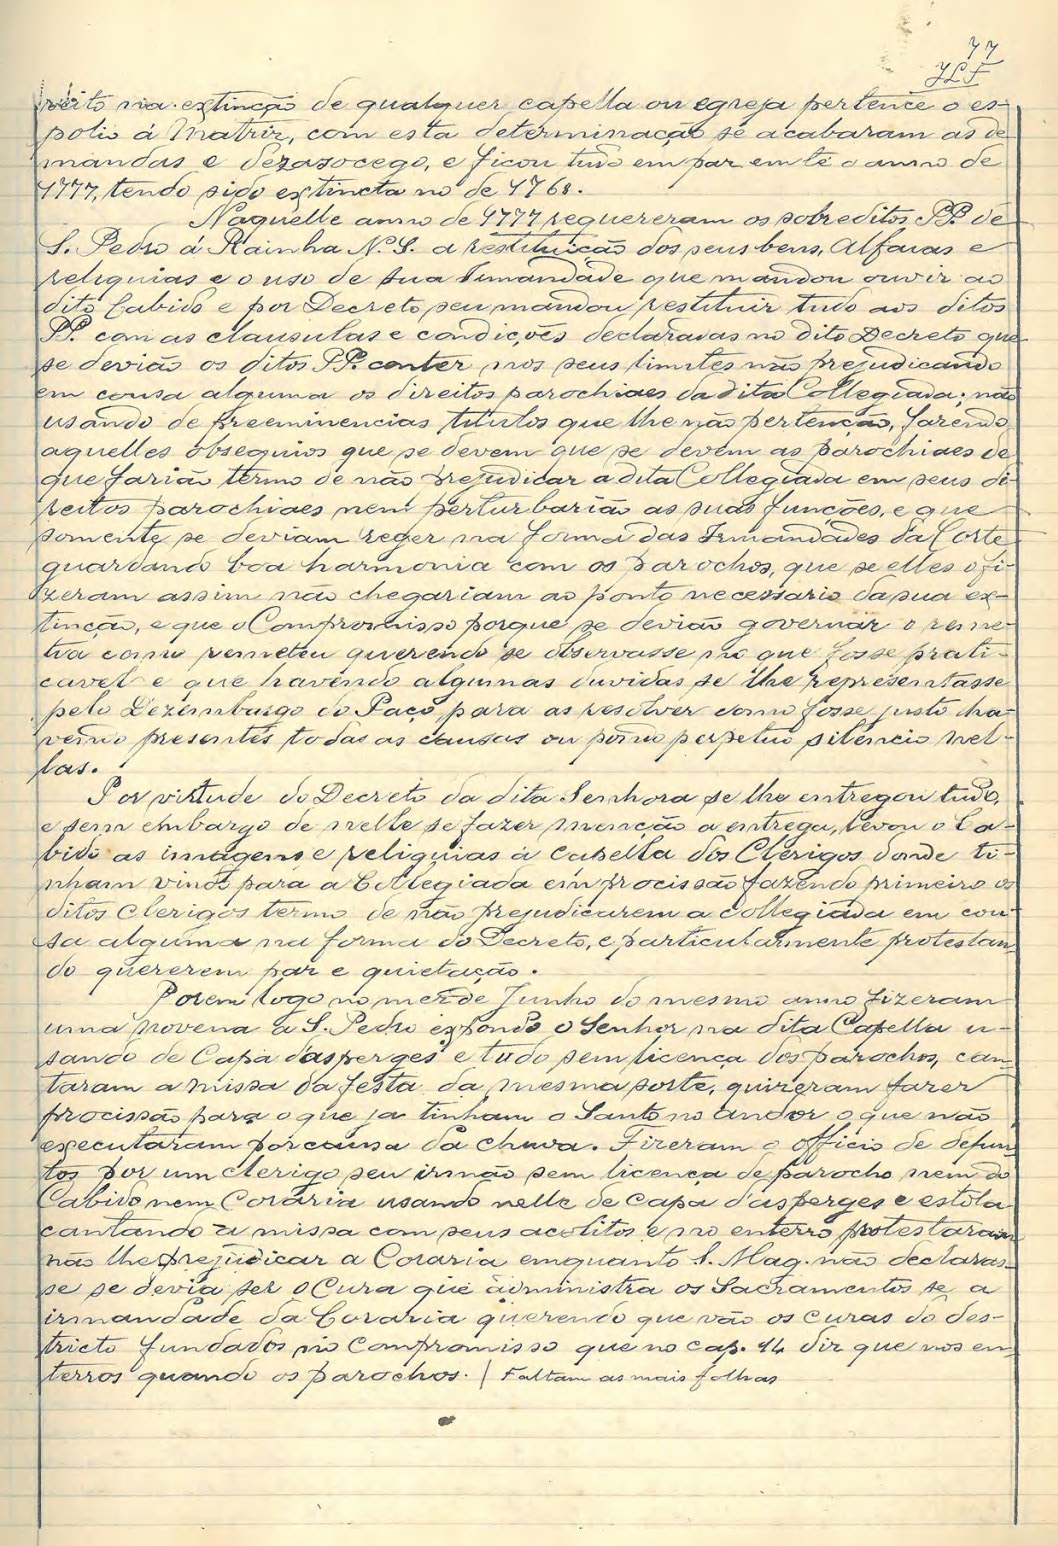 77
JLF
reito na extincção de qualquer capella ou egreja pertence o es-
polio á Matriz, com esta determinação se acabaram as de
mandas e dezasocego, e ficou tudo em paz em té o anno de
1777, tendo sido extincta no de 1768.
Naquelle anno de 1777 requereram os sobreditos PP. de
S. Pedro á Rainha N. S. a restituição dos seus bens, Alfaias e
reliquias e o uso de sua Irmandade que mandou ouvir ao
dito Cabido e por Decreto seu mandou restituir tudo aos ditos
PP. com as clausulas e condições declaradas no dito Decreto que
se devião os ditos PP. conter nos seus limites não prejudicando
em cousa alguma os direitos parochiaes da dita Collegiada; não
usando de preeminencias titulos que lhe não pertenção, fazendo
aquelles obsequios que se devem que se devem as parochiaes de
que farião termo de não prejudicar a dita Collegiada em seus di-
reitos parochiaes nem perturbarião as suas funcões, e que
somente se deviam reger na forma das Irmandades da Corte
guardando boa harmonia com os parochos, que se elles o fi-
zeram assim não chegariam ao ponto necessario da sua ex-
tincção, e que o Compromisso porque se devião governar o reme-
tia como remeteu querendo se observasse no que fosse prati-
cavel e que havendo algumas duvidas se lhe representasse
pelo Dezembargo do Paço, para as resolver como fosse justo ha-
vendo presentes todas as causas ou pôr perpetuo silencio nel-
las.
Por virtude do Decreto da dita Senhora se lhe entregou tudo,
e sem embargo de nelle se fazer menção a entrega, levou o Ca-
bido as imagens e reliquias á capella dos Clerigos donde ti-
nham vindo para a Collegiada em procissão fazendo primeiro os
ditos Clerigos termo de não prejudicarem a collegiada em cou-
sa alguma na forma do Decreto, e particularmente protestan-
do quererem paz e quietação.
Porem logo no mez de Junho do mesmo anno fizeram
uma novena a S. Pedro expondo o Senhor na dita Capella u-
sando de Capa d'asperges e tudo sem licença dos parochos, can-
taram a missa da festa da mesma sorte, quizeram fazer
procissão para o que ja tinham o Santo no andor o que não
executaram por causa da chuva. Fizeram o officio de defun-
tos por um clerigo seu irmão sem licença de parocho nem do
Cabido nem Coraria usando nelle de capa d'asperges e estola
cantando a missa com seus acolitos e no enterro protestaram
não lhe prejudicar a Coraria emquanto S. Mag. não declaras-
se se devia ser o Cura que administra os Sacramentos se a
irmandade da Coraria querendo que vão os curas do des-
tricto fundados no Compromisso que no cap. 14 diz que nos en-
terros quando os parochos. | Faltam as mais folhas